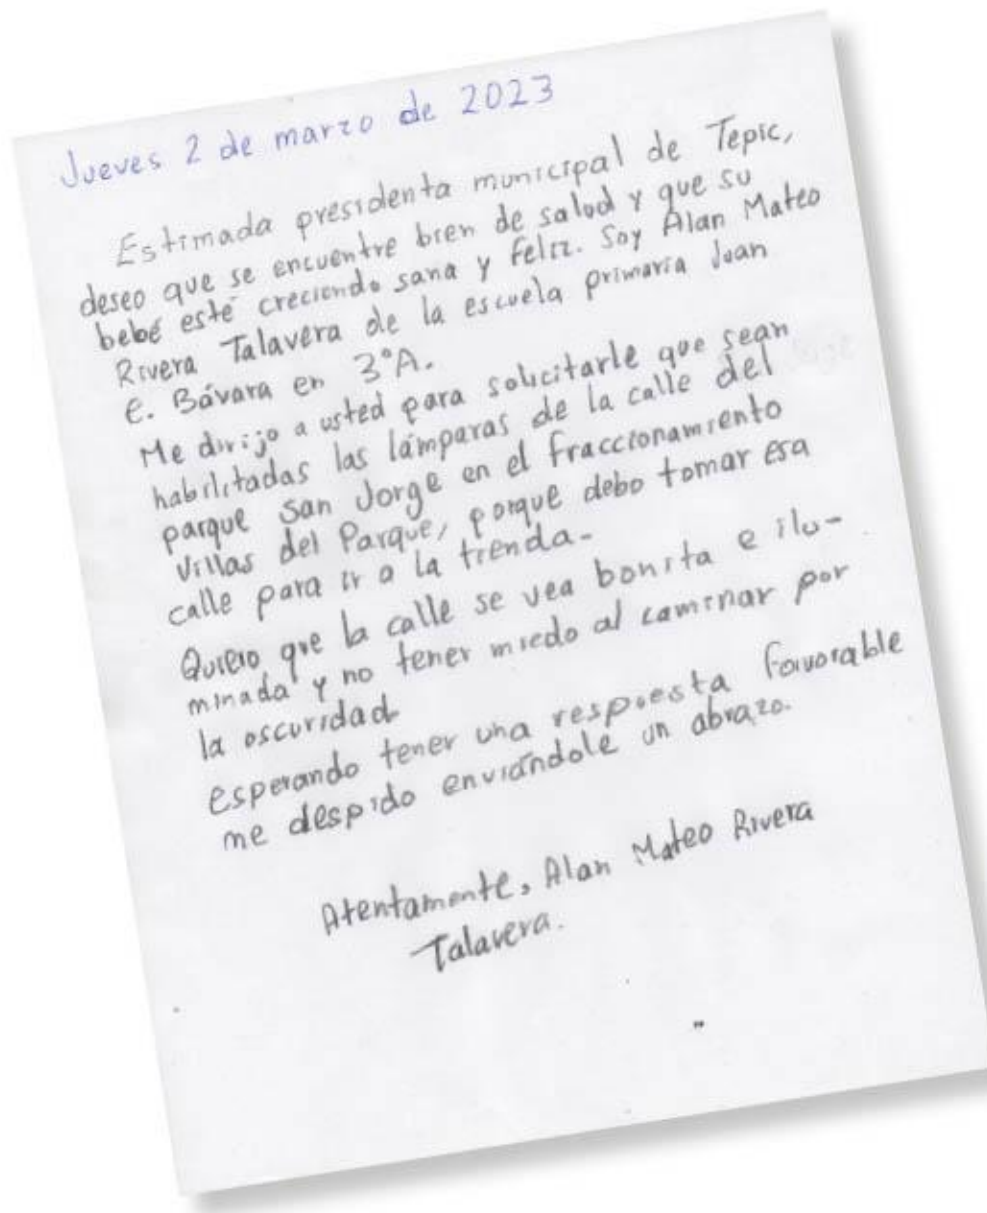 Jueves 2 de marzo de 2023
Estimada presidenta municipal de Tepic,
deseo que se encuentre bien de salud y que su
bebé esté creciendo sana y feliz. Soy Alan Mateo
Rivera Talavera de la escuela primaria Juan
E. Bávara en 3°A.
Me dirijo a usted para solicitarle que sean
habilitadas las lámparas de la calle del
parque San Jorge en el fraccionamiento
Villas del Parque, porque debo tomar esa
calle para ir a la tienda.
Quiero que la calle se vea bonita e ilu-
minada y no tener miedo al caminar por
la oscuridad
esperando tener una respuesta favorable
me despido enviándole un abrazo.
Atentamente, Alan Mateo Rivera
Talavera.